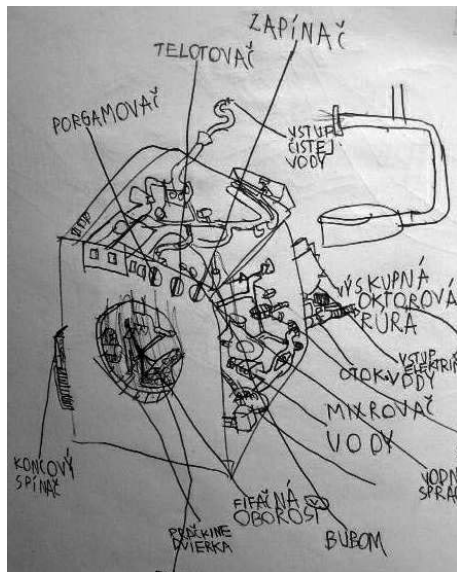 ZAPÍNAČ
TELOTOVAČ
PORGAMOVAČ
VSTUP
ČISTEJ
VODY
VÝSKUPNÁ
OKTOROVÁ
RÚRA
VSTUP
ELEKTRIN
OTOK VODY
MIXROVAČ
VODY
VODN
SPRA
KONCOVÝ
SPÍNAČ
FIFAČNÁ
OBOROSŤ
PRÁČKINE
DVIERKA
BUBOM